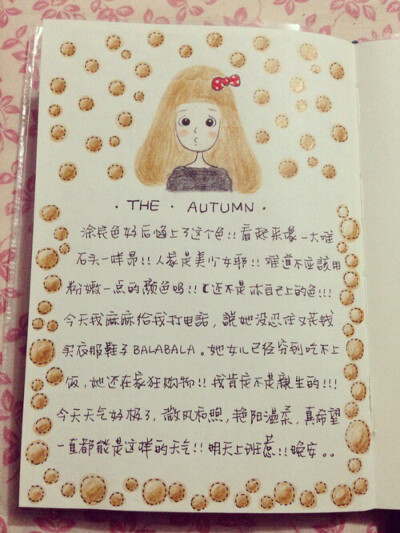 · THE · AUTUMN ·
涂完色好后悔上了这个色!! 看起来像一大堆
石头一样昂!! 人家是美少女耶!! 难道不应該用
粉嫩一点的颜色嗎!! 还不是你自己上的色!!!
今天我麻麻给我打电話,說她没忍住又来我
买衣服鞋了BALABALA。她女儿已经穷到吃不上
饭,她还在家狂购物!! 我肯定不是親生的!!!
今天天气好极了,微风和煦,艳阳温柔,真希望
一直都能是这样的天气!! 明天上班惹!! 晚安。。